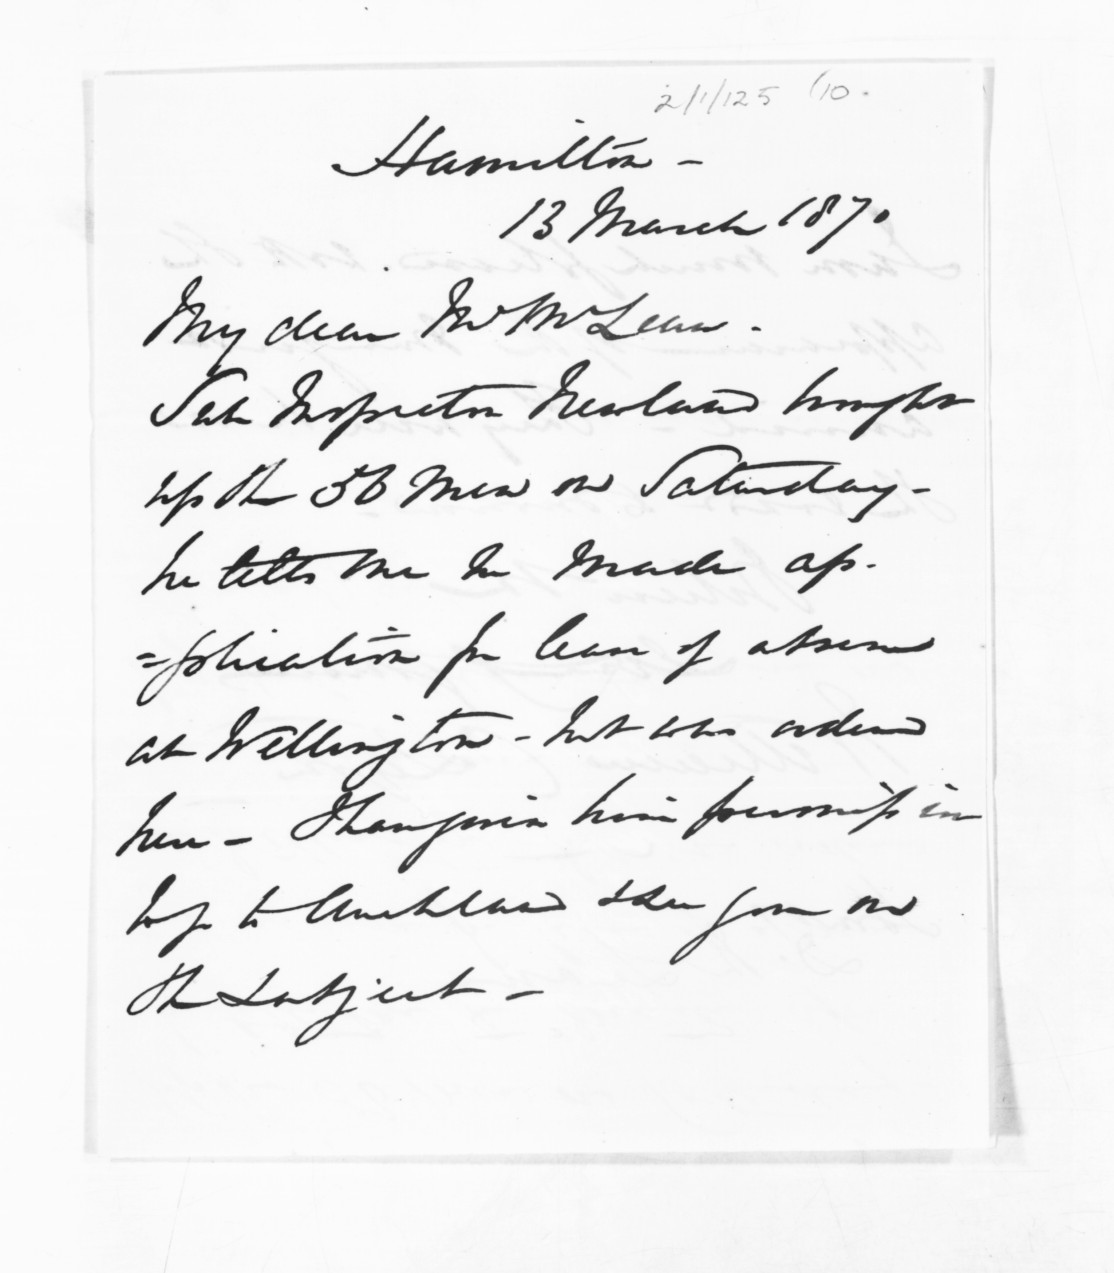 2/1/125 (10.
Hamilton -
13 March 1870
My dear Mr McLean.
Sub Inspector Newland brought
up the 56 men on Saturday -
he tells me he made ap-
=plication for leave of absence
at Wellington - but was ordered
here - I have given him permission
to go to Auckland & see you on
the subject -